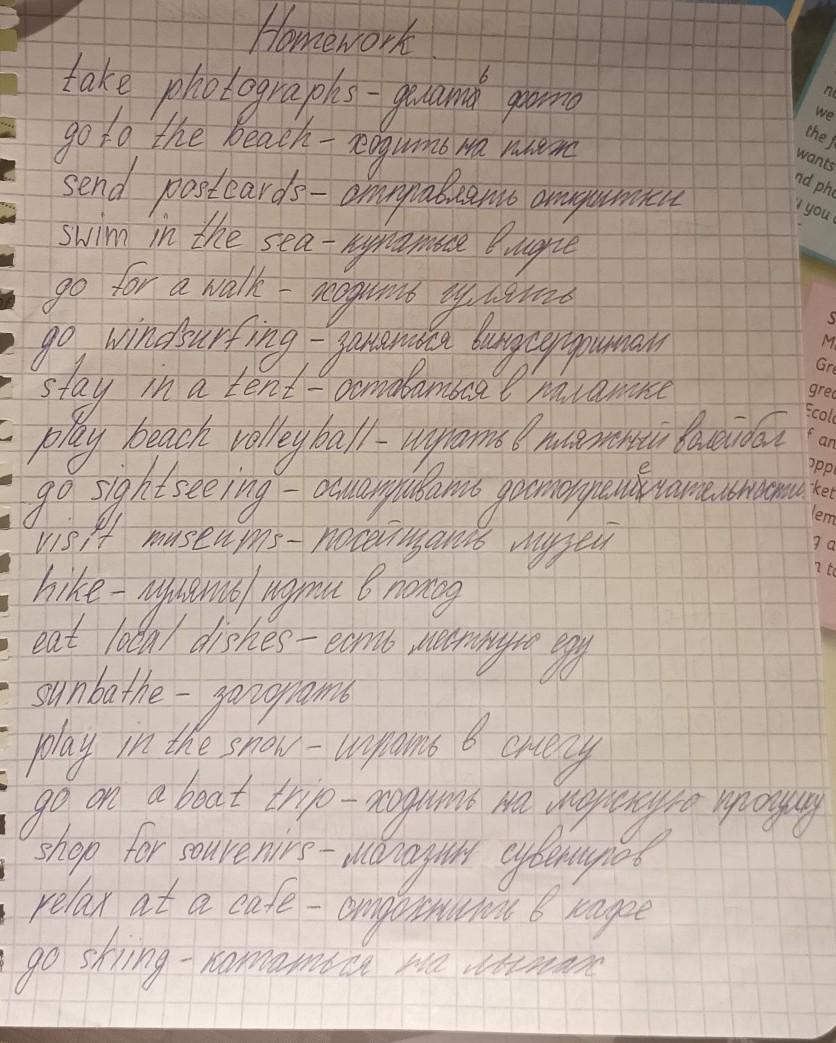 Homework
take photographs - делать фото
go to the beach - ходить на пляж
send postcards - отправлять открытки
swim in the sea - купаться в море
go for a walk - ходить гулять
go windsurfing - заняться виндсерфингом
stay in a tent - оставаться в палатке
play beach volleyball - играть в пляжный волейбол
go sightseeing - осматривать достопремечательности
visit museums - посейщать музей
hike - гулять/ идти в поход
eat local dishes - есть местную еду
sunbathe - загорать
play in the snow - играть в снегу
go on a boat trip - ходить на морскую прогулку
shop for souvenirs - магазин сувениров
relax at a cafe - отдохнить в кафе
go skiing - кататься на лыжах
we
the
wants
you